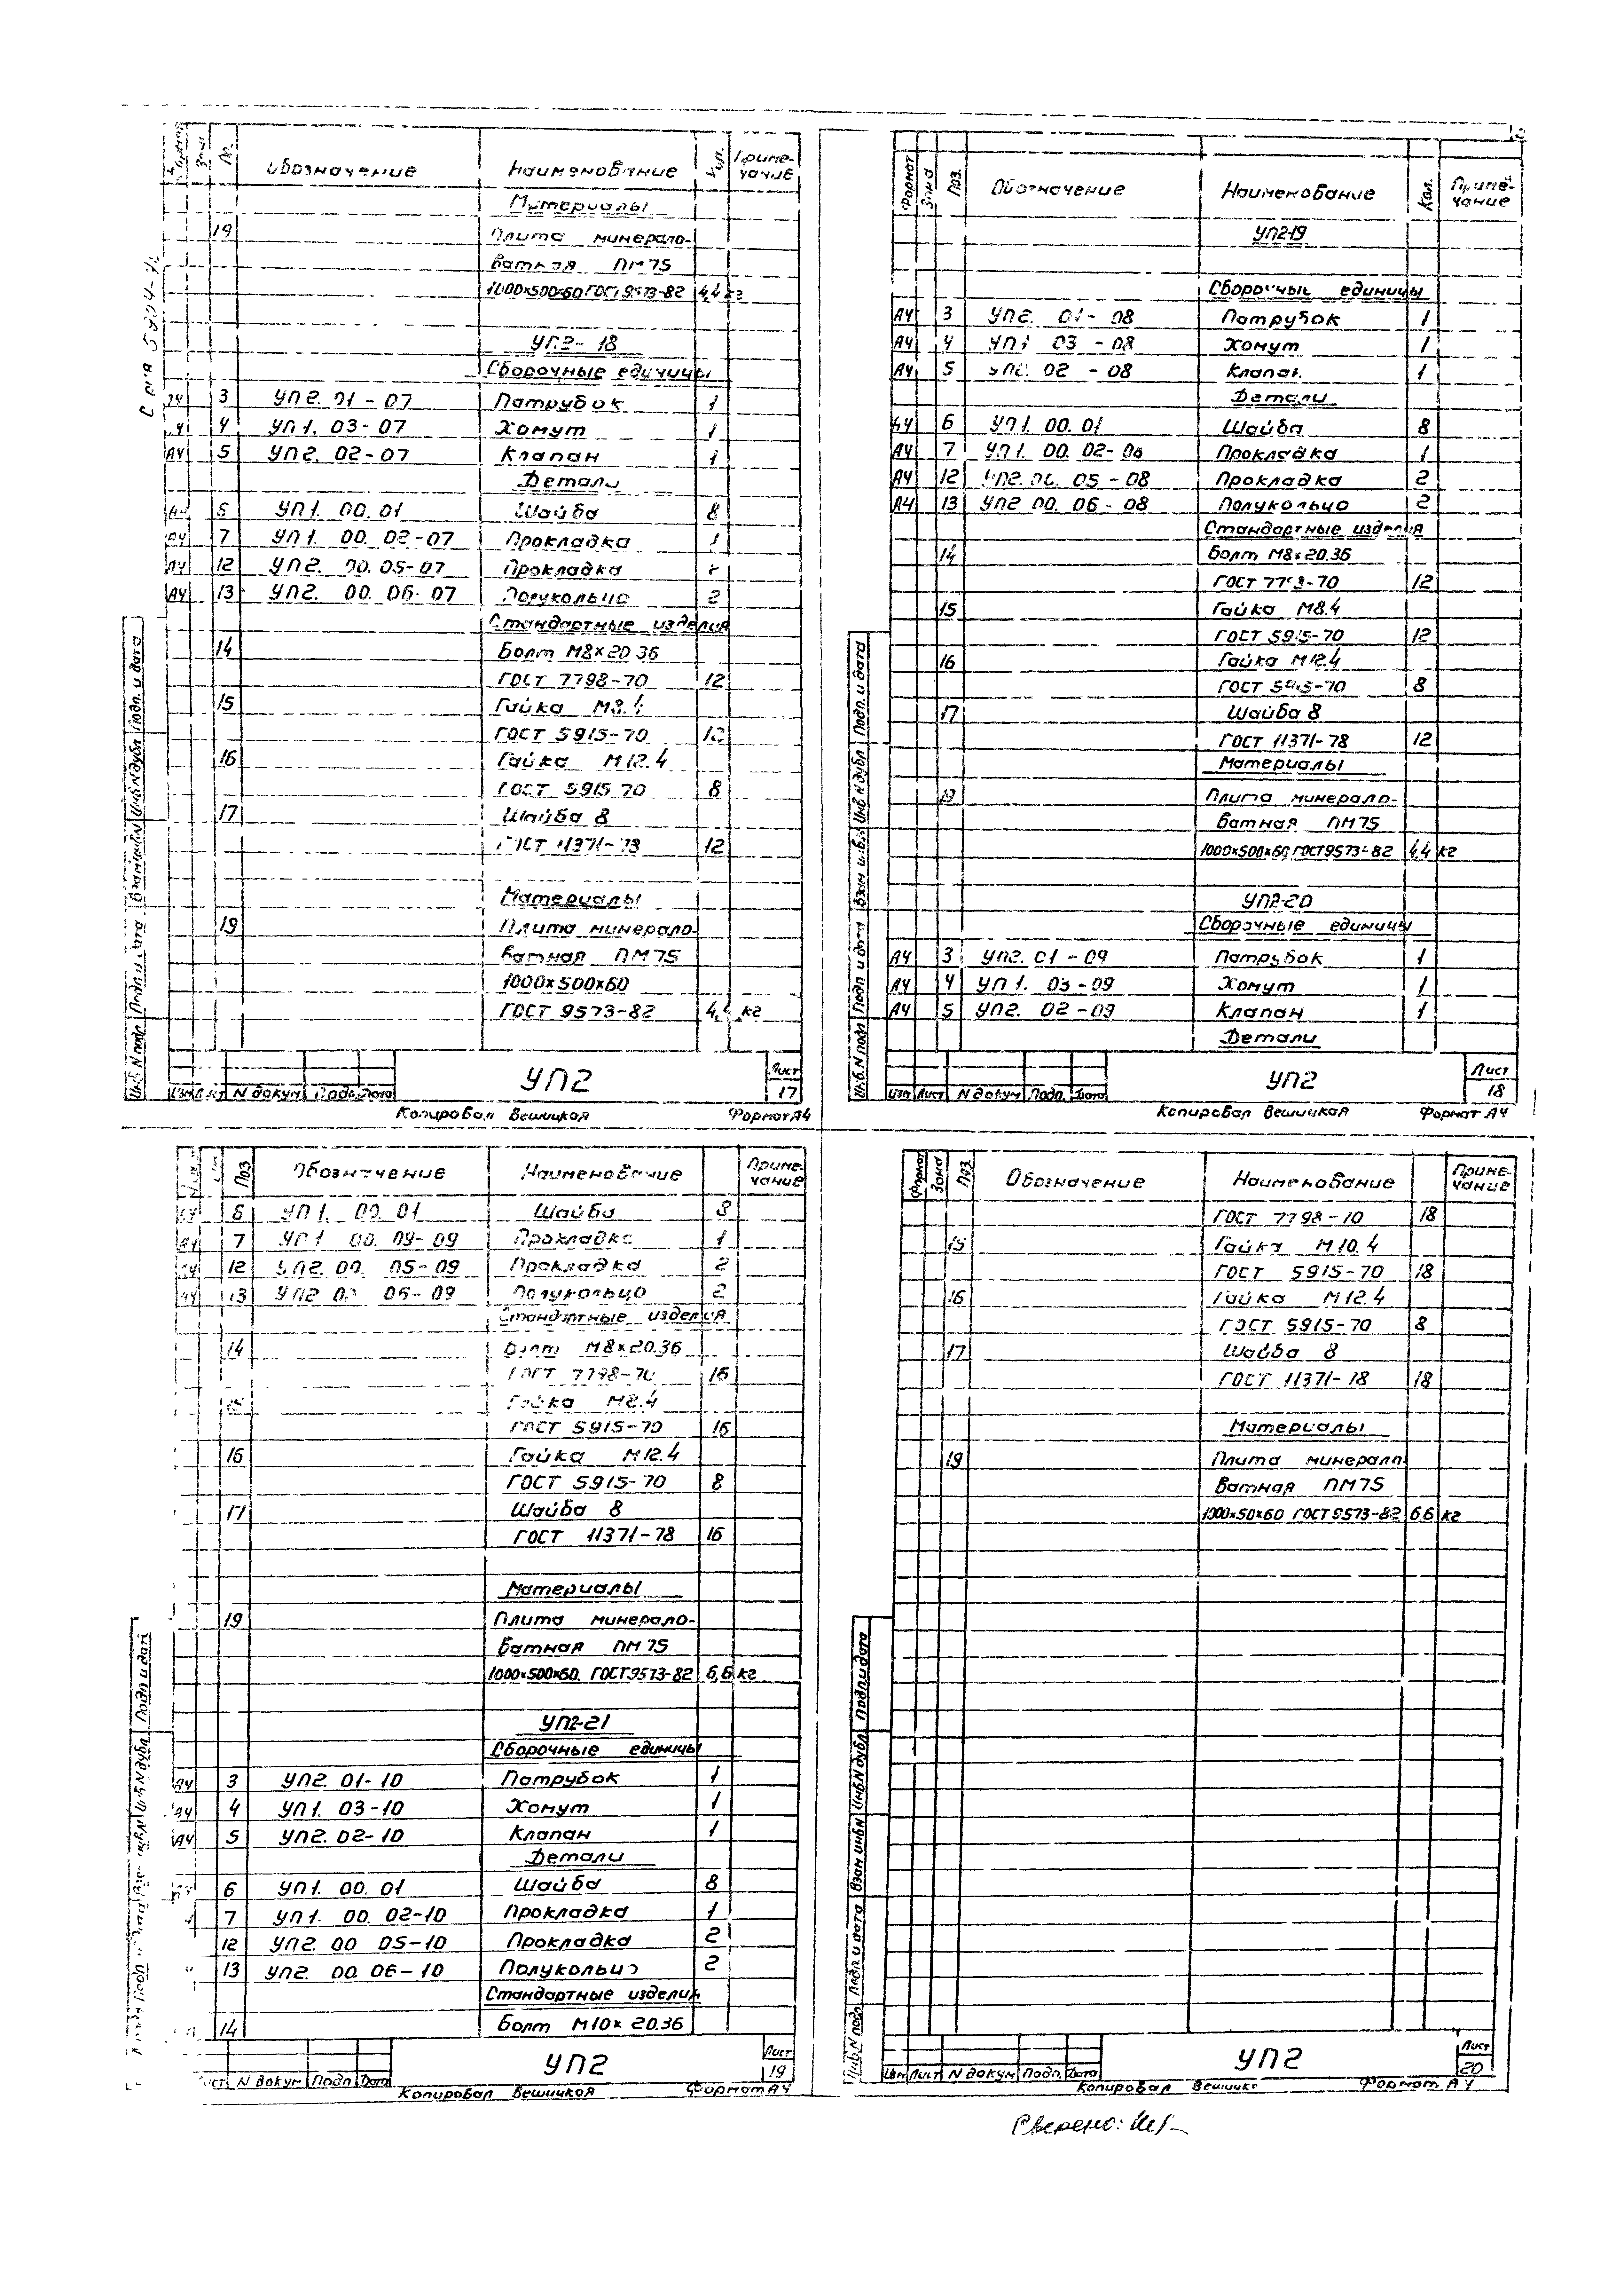 Обозначение Наименование Кол. Приме-
чание
Материалы
19 Плита минерало-
ватная ПМ75
1000х500х60 ГОСТ 9573-82 4,4 кг
УП2-18
Сборочные единицы
3 УП2. 01-07 Патрубок 1
4 УП1. 03-07 Хомут 1
А4 5 УП2. 02-07 Клапан 1
Детали
А4 6 УП1. 00.01 Шайба 8
А4 7 УП1. 00.02-07 Прокладка 1
А4 12 УП2. 00.05-07 Прокладка
А4 13 УП2. 00.06-07 Полукольцо 2
Стандартные изделия
14 Болт М8х20.36
ГОСТ 7798-70 12
15 Гайка М8.4
ГОСТ 5915-70 12
16 Гайка М12.4
ГОСТ 5915-70 8
17 Шайба 8
ГОСТ 11371-78 12
Материалы
19 Плита минерало-
ватная ПМ75
1000х500х60
ГОСТ 9573-82 4,4 кг
Инв. N подл Подп и дата Взам инв N Инв N дубл Подп. и дата
УП2 Лист
17
Изм Лист N докум Подп. Дата
Копировал Вешицкая Формат А4
Формат Зона Поз. Обозначение Наименование Кол. Приме-
чание
УП2-19
Сборочные единицы
А4 3 УП2. 01-08 Патрубок 1
А4 4 УП1 03-08 Хомут 1
А4 5 УП2. 02-08 Клапан 1
Детали
А4 6 УП1. 00.01 Шайба 8
А4 7 УП1. 00.02-08 Прокладка 1
А4 12 УП2. 00.05-08 Прокладка 2
А4 13 УП2 00.06-08 Полукольцо 2
Стандартные изделия
14 Болт М8х20.36
ГОСТ 7798-70 12
15 Гайка М8.4
ГОСТ 5915-70 12
16 Гайка М12.4
ГОСТ 5915-70 8
17 Шайба 8
ГОСТ 11371-78 12
Материалы
19 Плита минерало-
ватная ПМ75
1000х500х60 ГОСТ9573-82 4,4 кг
УП2-20
Сборочные единицы
А4 3 УП2. 01-09 Патрубок 1
А4 4 УП1. 03-09 Хомут 1
А4 5 УП2. 02-09 Клапан 1
Детали
Инв. N подл Подп и дата Взам инв N Инв N дубл Подп. и дата
УП2 Лист
18
Изм Лист N докум Подп. Дата
Копировал Вешицкая Формат А4
Поз Обозначение Наименование Приме-
чание
6 УП1. 00.01 Шайба 8
А4 7 УП1 00.09-09 Прокладка 1
12 УП2. 00. 05-09 Прокладка 2
А4 13 УП2 00 06-09 Полукольцо 2
Стандартные изделия
14 Болт М8х20.36
ГОСТ 7798-70 16
15 Гайка М8.4
ГОСТ 5915-70 16
16 Гайка М12.4
ГОСТ 5915-70 8
17 Шайба 8
ГОСТ 11371-78 16
Материалы
19 Плита минерало-
ватная ПМ75
1000х500х60. ГОСТ9573-82 6,6 кг
УП2-21
Сборочные единицы
А4 3 УП2. 01-10 Патрубок 1
А4 4 УП1. 03-10 Хомут 1
А4 5 УП2. 02-10 Клапан 1
Детали
6 УП1. 00.01 Шайба 8
7 УП1. 00. 02-10 Прокладка 1
12 УП2. 00 05-10 Прокладка 2
13 УП2. 00 06-10 Полукольцо 2
Стандартные изделия
14 Болт М10х20.36
Инв N дубл Подп и дата
УП2 Лист
19
Лист N докум Подп. Дата
Копировал Вешицкая Формат А4
Формат Зона Поз. Обозначение Наименование Приме-
чание
ГОСТ 7798-10 18
15 Гайка М10.4
ГОСТ 5915-70 18
16 Гайка М12.4
ГОСТ 5915-70 8
17 Шайба 8
ГОСТ 11371-78 18
Материалы
19 Плита минерало
ватная ПМ75
1000х50х60 ГОСТ9573-82 6,6 кг
Инв N подл Подп. и дата Взам инв N Инв N дубл Подп. и дата
УП2 Лист
20
Изм Лист N докум Подп. Дата
Копировал Вешицк Формат А4
Сверено: